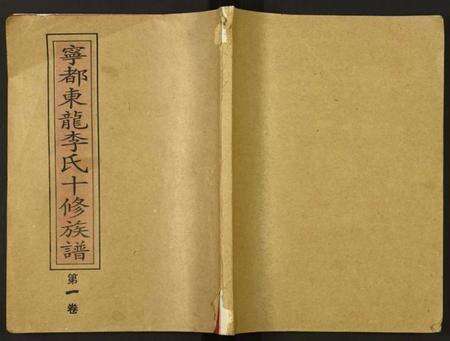 寧都東龍李氏十修族譜
第一卷